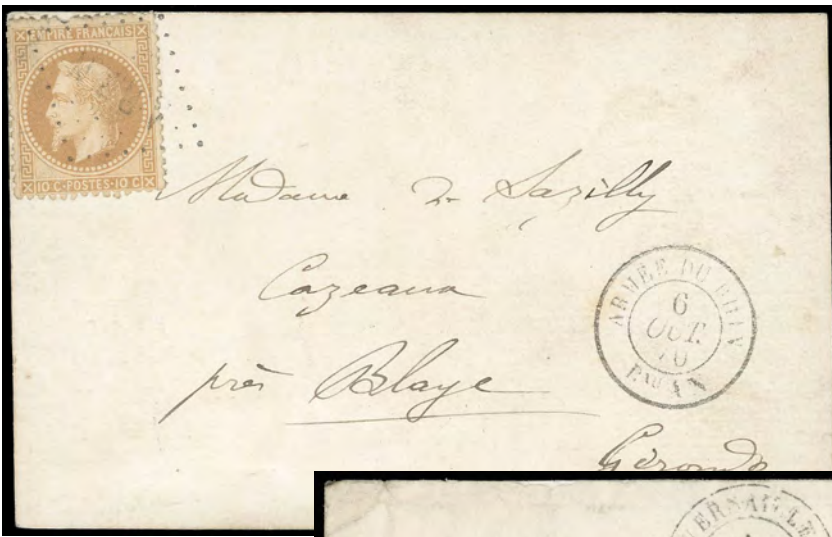 EMPIRE FRANÇAIS
10 C·POSTES·10 C
Madame de Sazilly
Cazeaux
près Blaye
Gironde
ARMÉE DU RHIN
6
OCT.
70
BAU